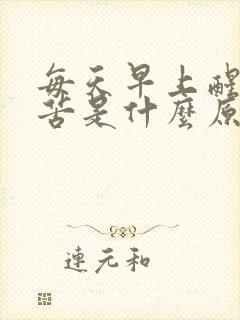 每天早上醒
苦是什麼原
連元和